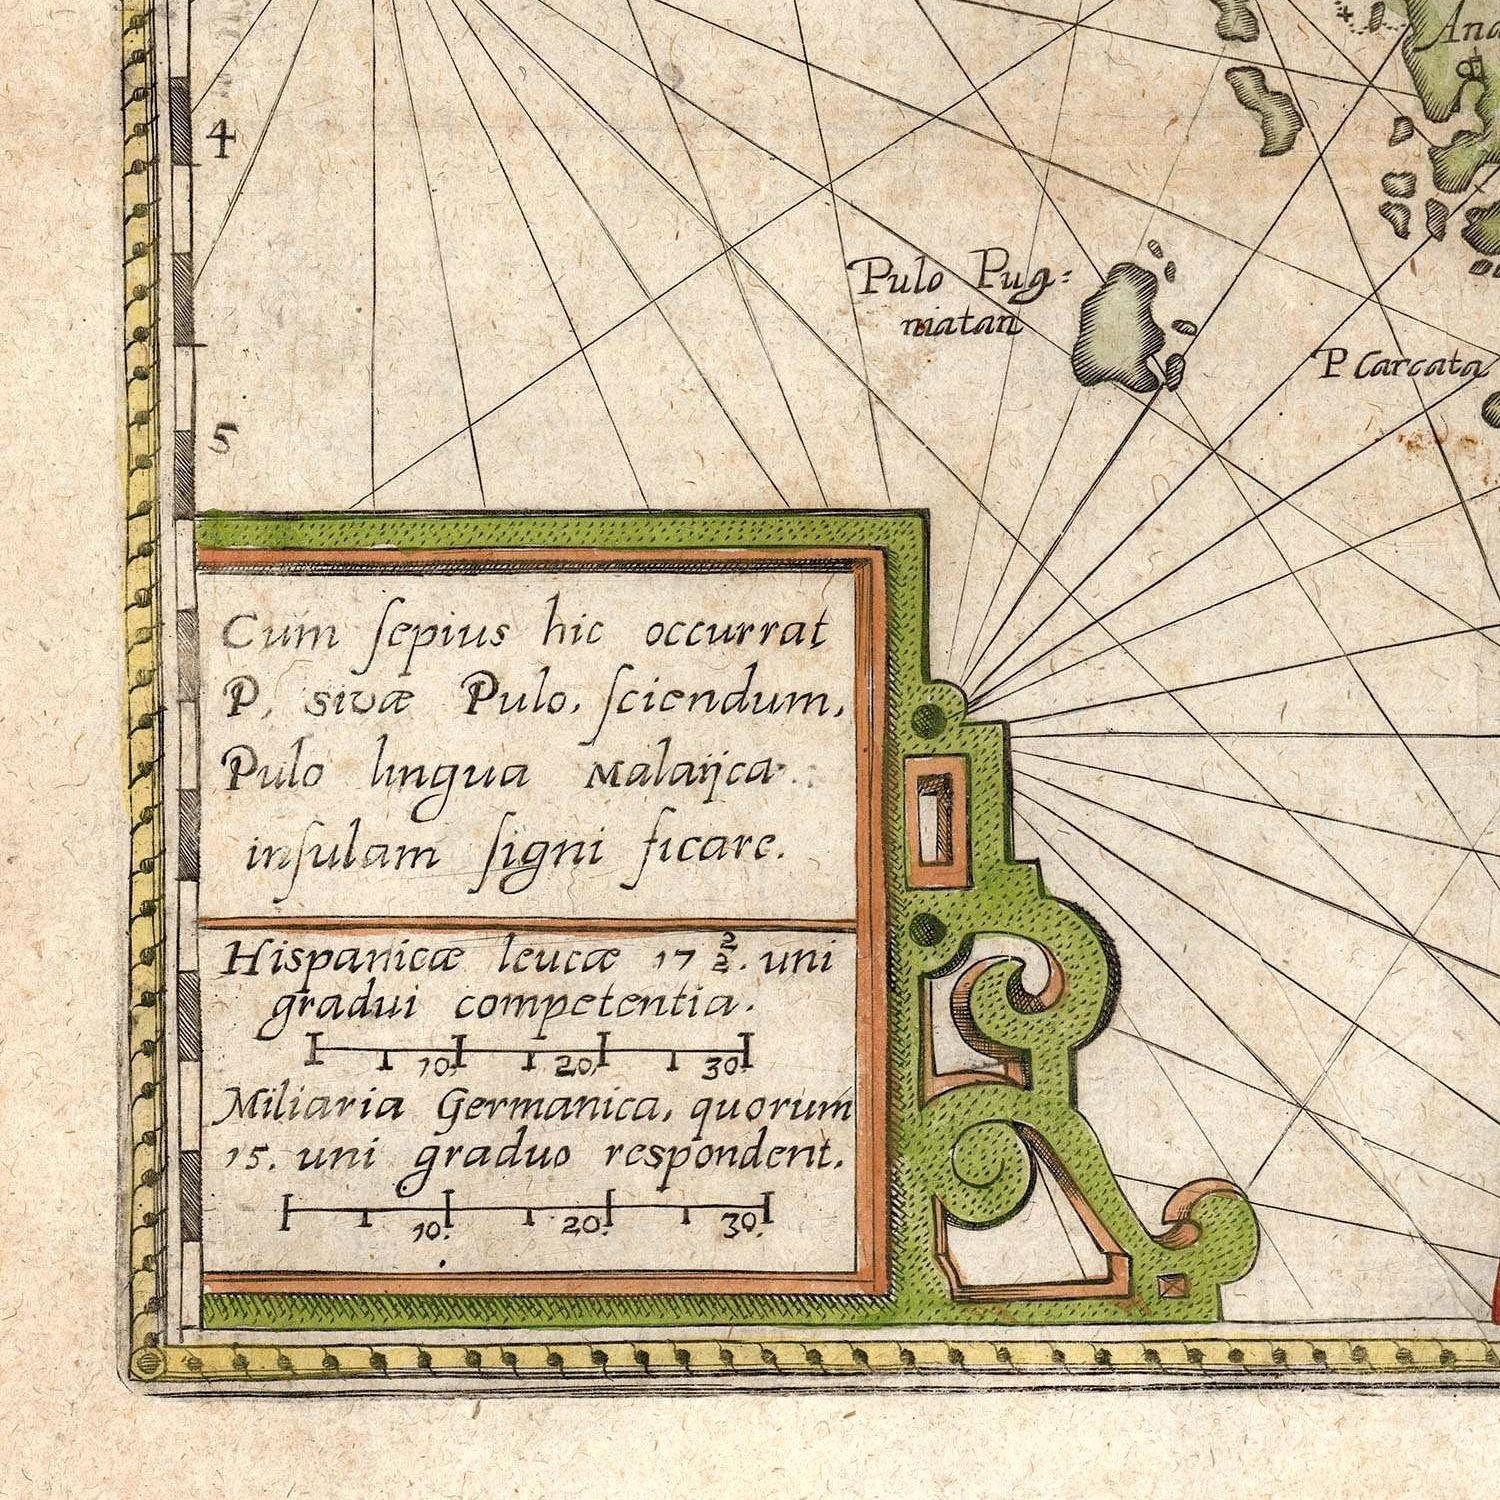 4
And
Pulo Pug:
niatan
P Carcata
5
Cum ſepius hic occurrat
P, sivæ Pulo, ſciendum,
Pulo lingua Malaÿca
inſulam ſigni ficare.
Hispanicæ leucæ 17 2/2. uni
gradui competentia.
10. 20. 30.
Miliaria Germanica, quorum
15. uni graduo respondent.
10. 20. 30.